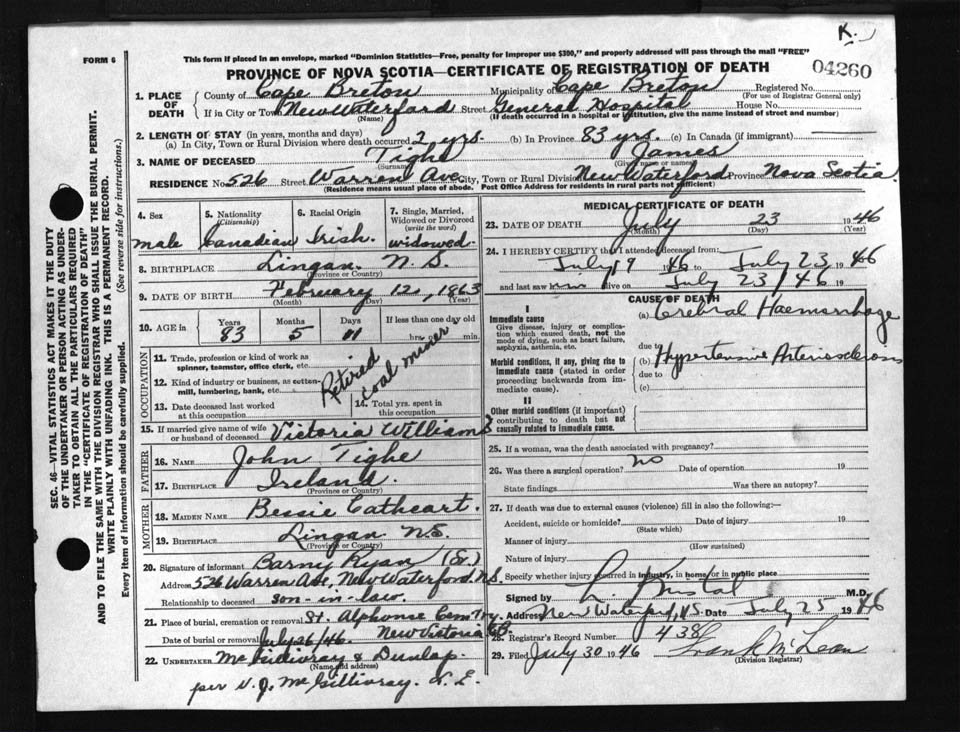 K.
FORM 6
This form if placed in an envelope, marked "Dominion Statistics—Free, penalty for improper use $300," and properly addressed will pass through the mail "FREE"
PROVINCE OF NOVA SCOTIA—CERTIFICATE OF REGISTRATION OF DEATH
04260
SEC. 46—VITAL STATISTICS ACT MAKES IT THE DUTY
OF THE UNDERTAKER OR PERSON ACTING AS UNDER-
TAKER TO OBTAIN ALL THE PARTICULARS REQUIRED
IN THE "CERTIFICATE OF REGISTRATION OF DEATH"
AND TO FILE THE SAME WITH THE DIVISION REGISTRAR WHO SHALL ISSUE THE BURIAL PERMIT.
WRITE PLAINLY WITH UNFADING INK. THIS IS A PERMANENT RECORD.
Every item of information should be carefully supplied. (See reverse side for instructions.)
1. PLACE OF DEATH County of Cape Breton Municipality of Cape Breton Registered No.
(For use of Registrar General only)
If in City or Town New Waterford Street General Hospital House No.
(Name) (If death occurred in a hospital or institution, give the name instead of street and number)
2. LENGTH OF STAY (in years, months and days)
(a) In City, Town or Rural Division where death occurred 2 yrs. (b) In Province 83 yrs. (c) In Canada (if immigrant)
3. NAME OF DECEASED Tighe James
(Surname) (Given name or names)
RESIDENCE No. 526 Street Warren Ave City, Town or Rural Division New Waterford Province Nova Scotia.
(Residence means usual place of abode. Post Office Address for residents in rural parts not sufficient)
4. Sex
male
5. Nationality
(Citizenship)
Canadian
6. Racial Origin
Irish.
7. Single, Married,
Widowed or Divorced
(write the word)
widowed.
8. BIRTHPLACE Lingan. N.S.
(Province or Country)
9. DATE OF BIRTH February 12, 1863
(Month) (Day) (Year)
10. AGE in
Years Months Days If less than one day old
83 5 11 hrs. or min.
OCCUPATION
11. Trade, profession or kind of work as
spinner, teamster, office clerk, etc.
12. Kind of industry or business, as cotton-
mill, lumbering, bank, etc.
Retired
coal miner
13. Date deceased last worked
at this occupation
14. Total yrs. spent in
this occupation
15. If married give name of wife
or husband of deceased Victoria Williams
FATHER
16. NAME John Tighe
17. BIRTHPLACE Ireland.
(Province or Country)
MOTHER
18. MAIDEN NAME Bessie Cathcart.
19. BIRTHPLACE Lingan N.S.
(Province or Country)
20. Signature of informant Barny Ryan
Address 526 Warren Ave, New Waterford. N.S.
Relationship to deceased son-in-law.
21. Place of burial, cremation or removal St. Alphonse Cemtry.
Date of burial or removal July 26/46. New Victoria CB.
22. UNDERTAKER McGillivray & Dunlap.
(Name and address)
per N. J. McGillivray. L. E.
MEDICAL CERTIFICATE OF DEATH
23. DATE OF DEATH July 23 1946
(Month) (Day) (Year)
24. I HEREBY CERTIFY that I attended deceased from:
July 9 1946 to July 23 1946
and last saw him alive on July 23 1946
CAUSE OF DEATH
I
Immediate cause
Give disease, injury or complica-
tion which caused death, not the
mode of dying, such as heart failure,
asphyxia, asthenia, etc.
(a) Cerebral Haemorrhage
due to
Morbid conditions, if any, giving rise to
immediate cause (stated in order
proceeding backwards from im-
mediate cause).
(b) Hypertensive Arteriosclerosis
due to
(c)
II
Other morbid conditions (if important)
contributing to death but not
causally related to immediate cause.
25. If a woman, was the death associated with pregnancy?
26. Was there a surgical operation? no Date of operation 19
State findings Was there an autopsy?
27. If death was due to external causes (violence) fill in also the following:—
Accident, suicide or homicide? Date of injury 19
(State which)
Manner of injury
(How sustained)
Nature of injury
Specify whether injury occurred in industry, in home or in public place
Signed by M.D.
Address New Waterford, N.S Date July 25 1946
28. Registrar's Record Number 438
29. Filed July 30 1946 Frank McLean
(Division Registrar)